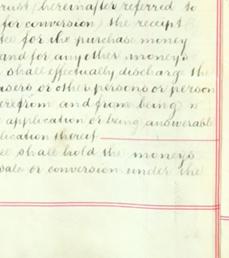 trust (hereinafter referred to
for conversion) the receipt
for the purchase money
and for any other moneys
shall effectually discharge the
asers or other persons or person
erefrom and from being
application or being answerable
lication thereof
shall hold the moneys
sale or conversion under the